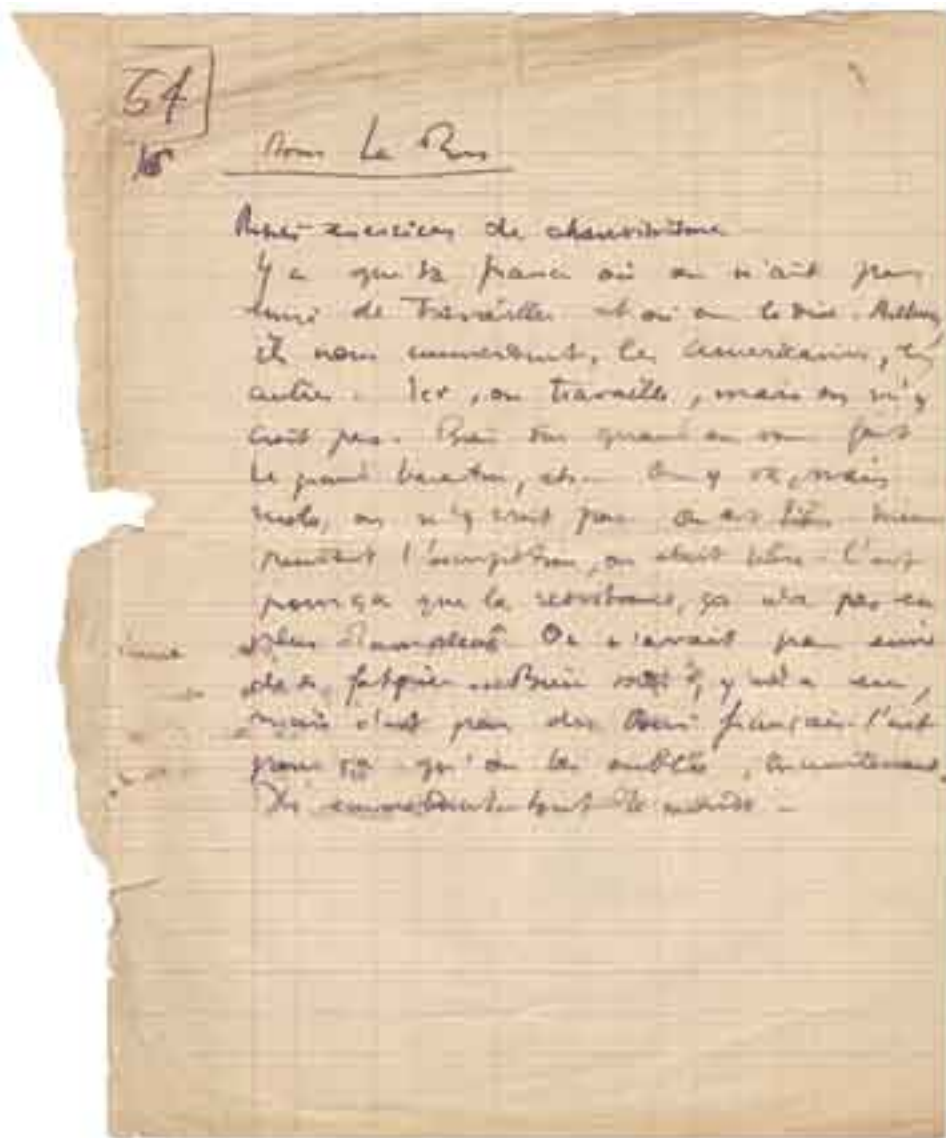 54
Petits exercices de chauvinisme
Y a que la france où on n'ait pas
envie de travailler et où on le dise. Ailleurs,
ils nous emmerdent, les américains, les
autres. Ici, on travaille, mais on n'y
croit pas. Bien sûr quand on vous fait
le grand baratin, on y va, mais
on n'y croit pas
pendant l'occupation, on était bien. C'est
pour ça que la résistance, ça n'a pas eu
plus d'ampleur. On n'avait pas envie
de se fatiguer. Bien sûr, y en a eu,
mais c'est pas des bons français. C'est
pour ça qu'on les oublie, maintenant.
Ils emmerdent tout le monde.